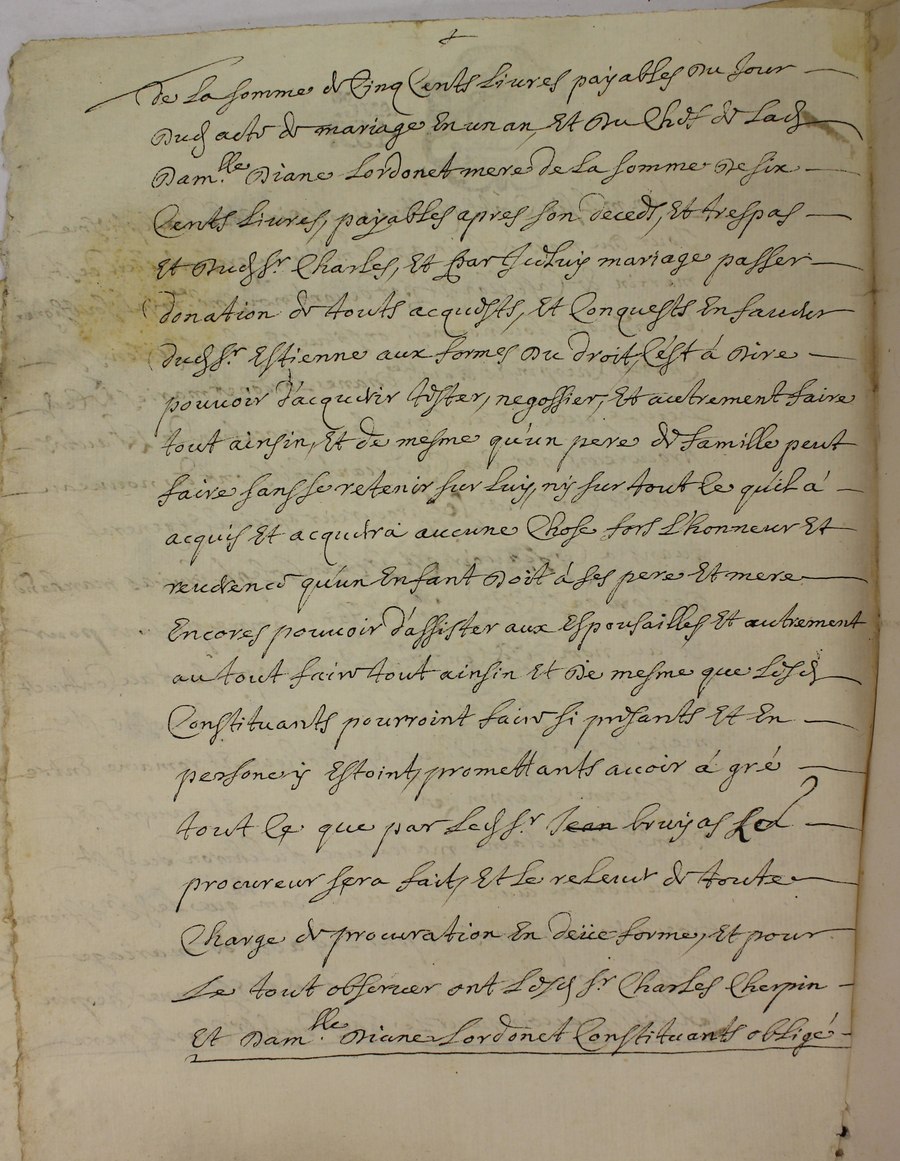 de la somme de Cinq Cents Livres payables du Jour
dud acte de mariage En un an, Et du Chef de Lad
Dam.lle Diane Lordonet mere de la somme de six
Cents Livres, payables apres son deceds, Et trespas
Et dud Sr. Charles, Et par Iceluy mariage passer
donation de touts acquests, Et Conquests En faveur
dud Sr. Estienne aux formes du droit, C'est à dire
pouvoir d'acquerir tester, negossier, Et autrement faire
tout ainsin, Et de mesme qu'un pere de famille peut
faire sans se retenir sur luy, ny sur tout le qu'il à
acquis Et acquerra aucune Chose fors l'honneur Et
reverence qu'un Enfant doit à ses pere Et mere
Encores pouvoir d'assister aux Espousailles Et autrement
au tout faire tout ainsin Et de mesme que Lesd
Constituants pourroint faire si presants Et En
persone y Estoint, promettants avoir à gré
tout Ce que par led Sr. Jean bruyas Led
procureur sera fait, Et le relever de toute
Charge de procuration En deüe forme, Et pour
Le tout observer ont Lesd Sr. Charles Cherpin
Et Dam.lle Diane Lordonet Constituants obligé